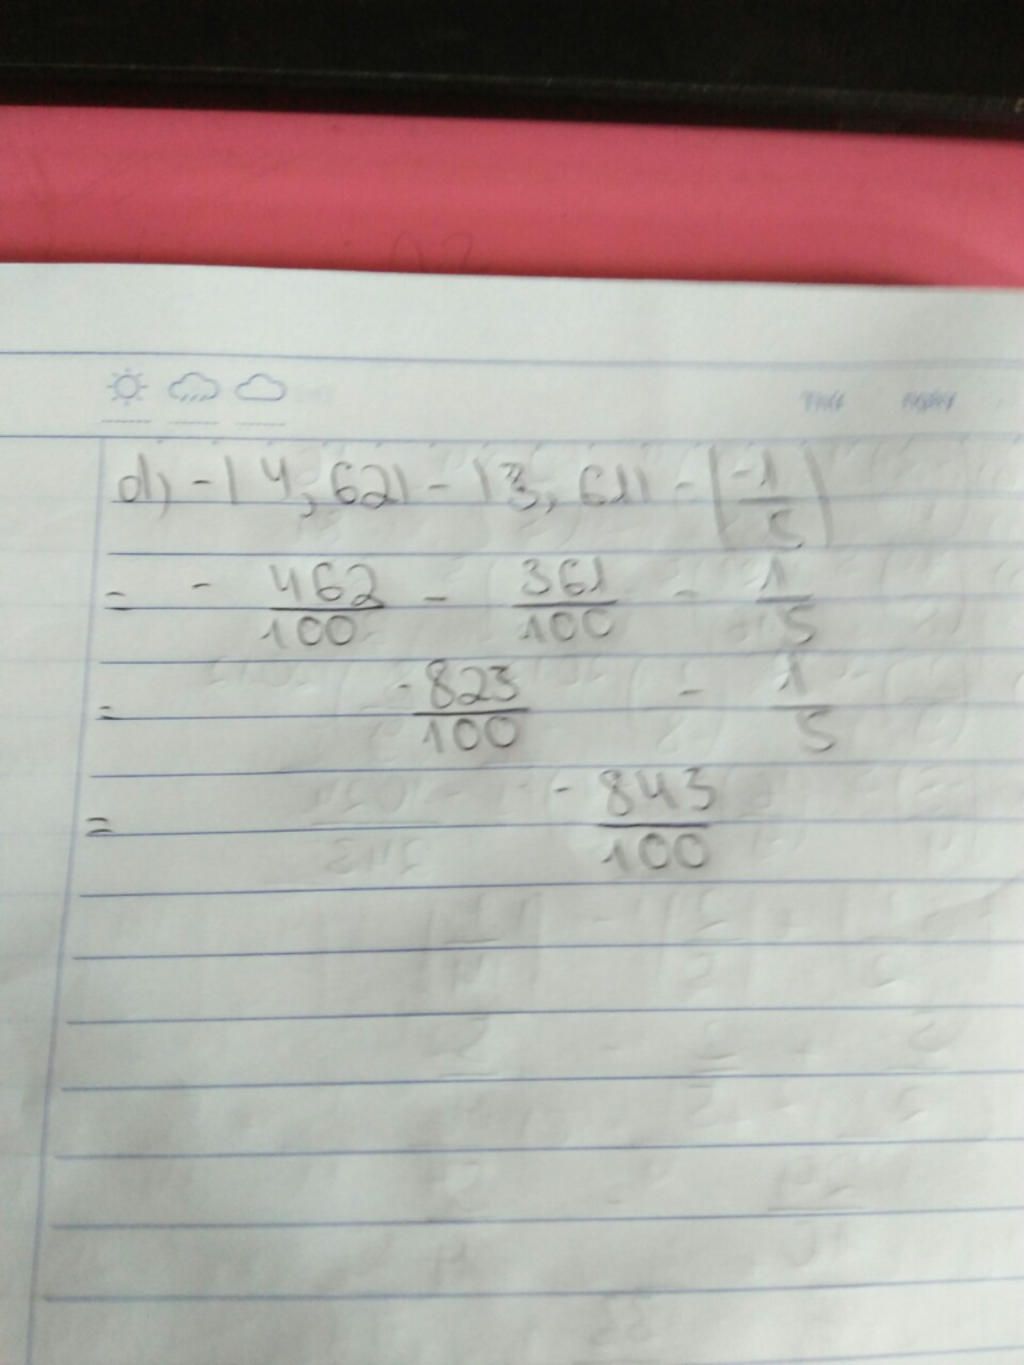 d, -|4,62| - |3,61| - |-1/5|
= - 462/100 - 361/100 - 1/5
= -823/100 - 1/5
= -843/100